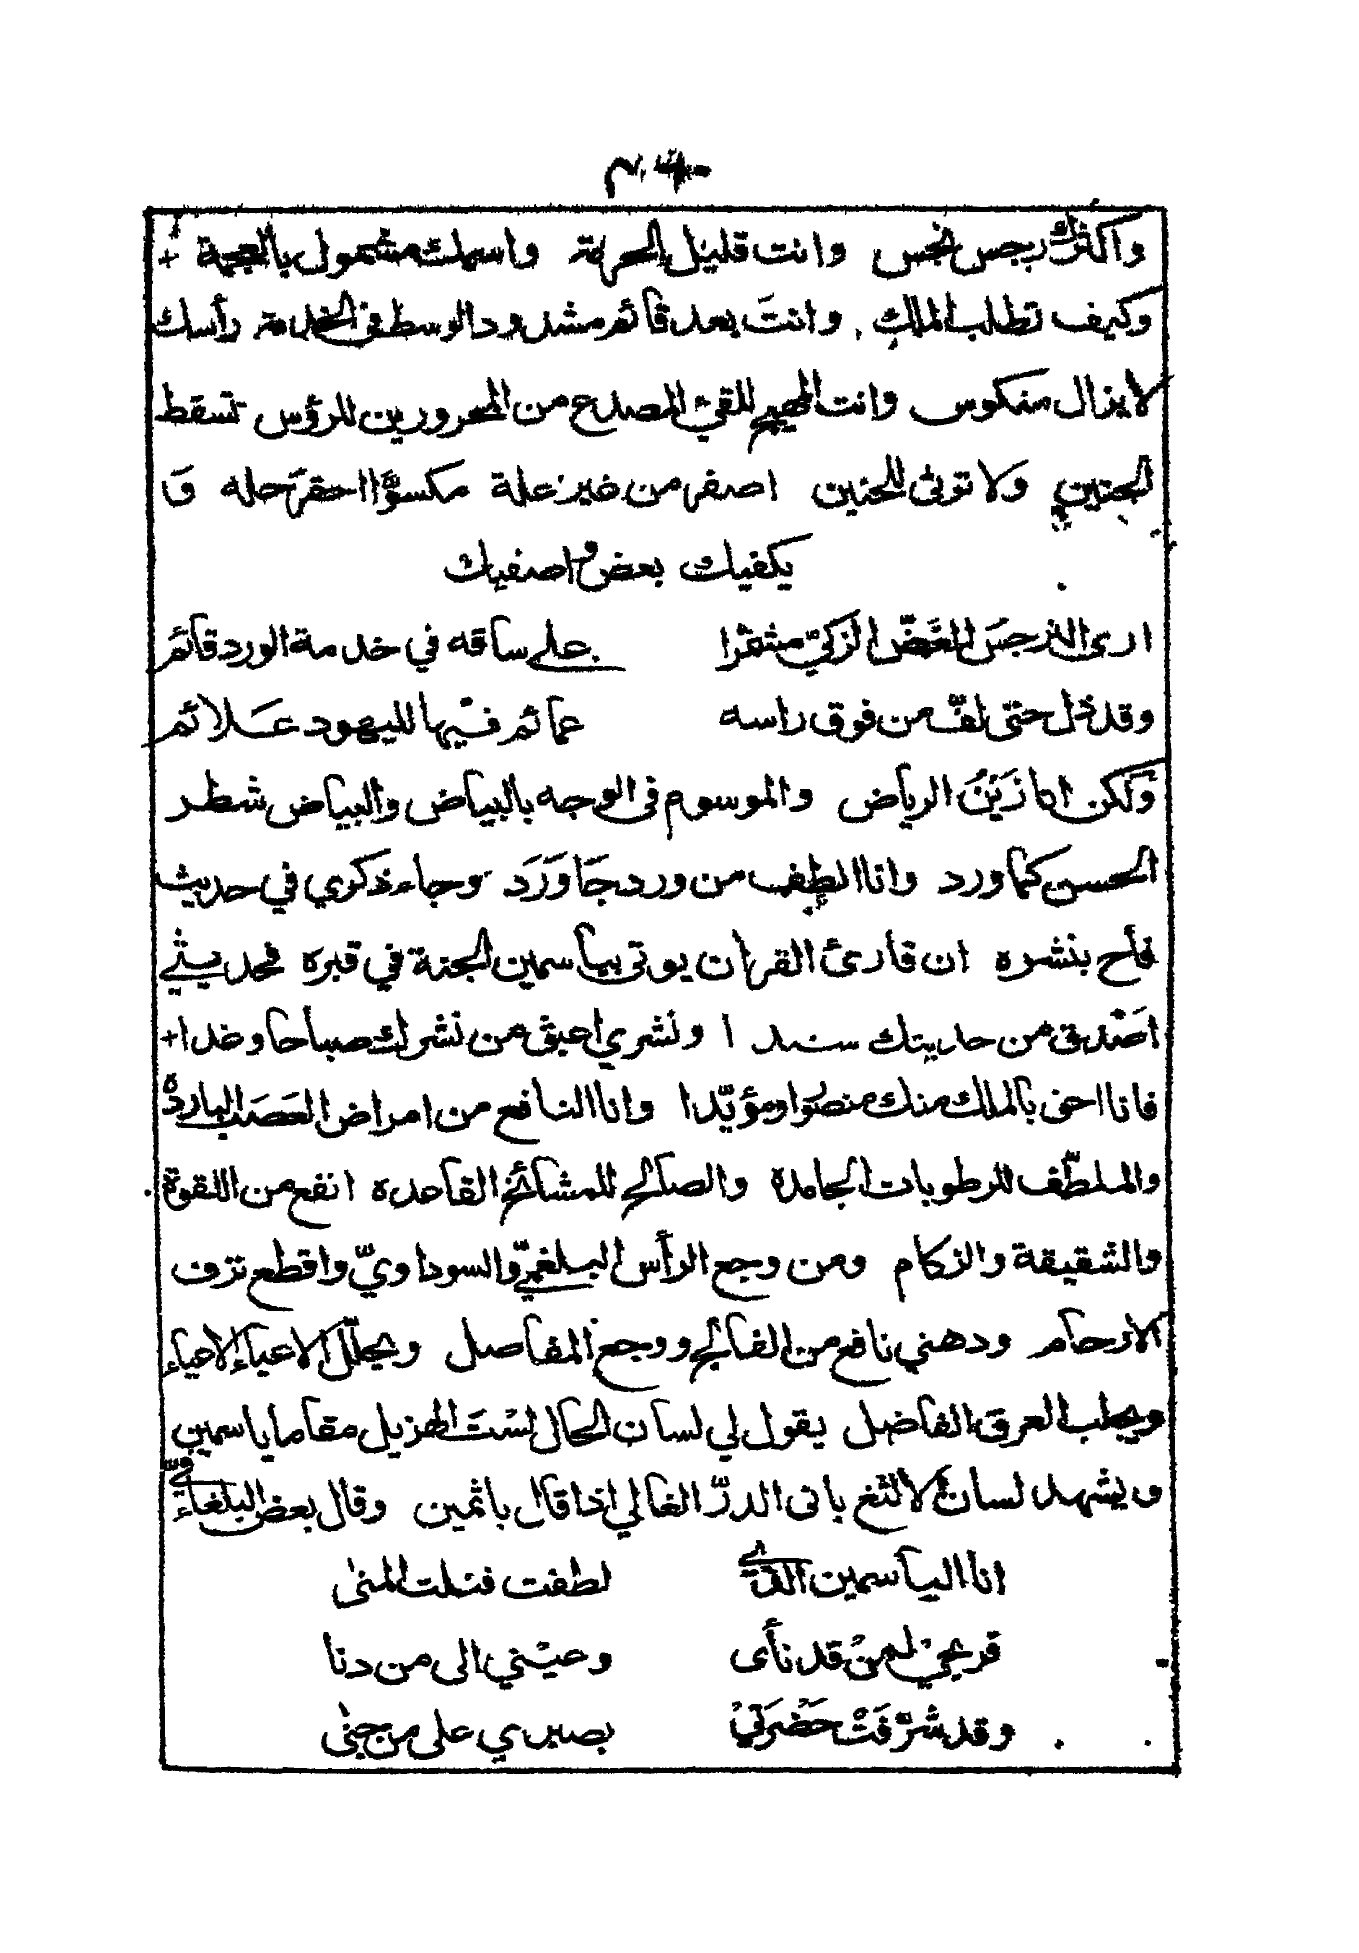 واكثرك رجس نجس وانت قليل الحرمة واسمك مشمول بالعجمة
وكيف تطلب الملك وانتَ بعد قائم مشدود الوسط في الخدمة رأسك
لا يزال منكوس وانت المهيج للقئ المصدع من المحرورين للرؤس تسقط
الجنين ولا توثي للحنين اصفر من غير علة مكسوٌّ احقر حله وَ
يكفيك بعض اصفيائك
ارى النرجسَ الغضّ الزكيّ مشمرا على ساقه في خدمة الورد قائم
وقد ذل حتى لفّ من فوق راسه عمائم فيها لليهود علائم
وَلكن انا زَيْنُ الرياض والموسوم في الوجه بالبياض والبياض شطر
الحسن كما ورد وانا الطف من ورد جَا وَرَد وجاء ذكري في حديث
فأح بنشره ان قارئ القران يوتى بياسمين الجنة في قبره فحديثي
اَصْدق من حديثك سندا ونشري اعبق من نشرك صباحا وغدا
فانا احق بالملك منك منصورا ومؤيّدا وانا النافع من امراض العصَب الباردة
والملطّف للرطوبات الجامدة والصالح للمشائخ القاعده انفع من اللقوة
والشقيقة والزكام ومن وجع الرأس البلغميّ والسوداويّ واقطع نزف
الارحام ودهني نافع من الفالج ووجع المفاصل ويحلّل الاعياء الاعياء
ويجلب العرق الفاضل يقول لي لسان الحال لسْتَ الهزيل مقاما يا سمين
ويشهد لسان الالثغ باني الدرّ الغالي اذا قال يا ثمين وقال بعض البلغاء فيّ
انا الياسمين الذي لطفت فنلت المنى
فريحي لمنْ قد نأى وعيْني الى من دنا
وقد شرّفَتْ حَضْرَتيْ بصبري على من جنى